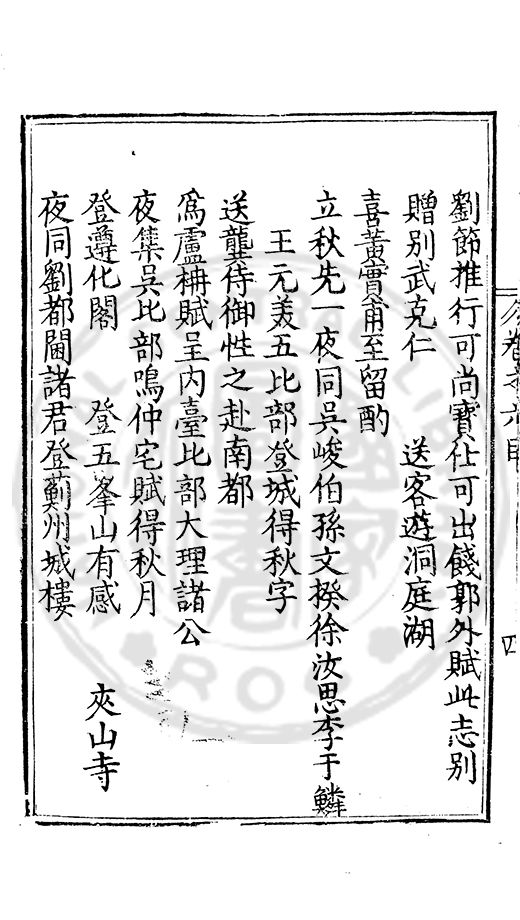 劉節推行可尚寶仕可出餞郭外賦此志別
贈別武克仁 送客遊洞庭湖
喜黃實甫至留酌
立秋先一夜同吳峻伯孫文揆徐汝思李于鱗
王元美五比部登城得秋字
送龔侍御性之赴南都
為盧枏賦呈內臺比部大理諸公
夜集吳比部鳴仲宅賦得秋月
登遵化閣 登五峯山有感 夾山寺
夜同劉都閫諸君登薊州城樓
四